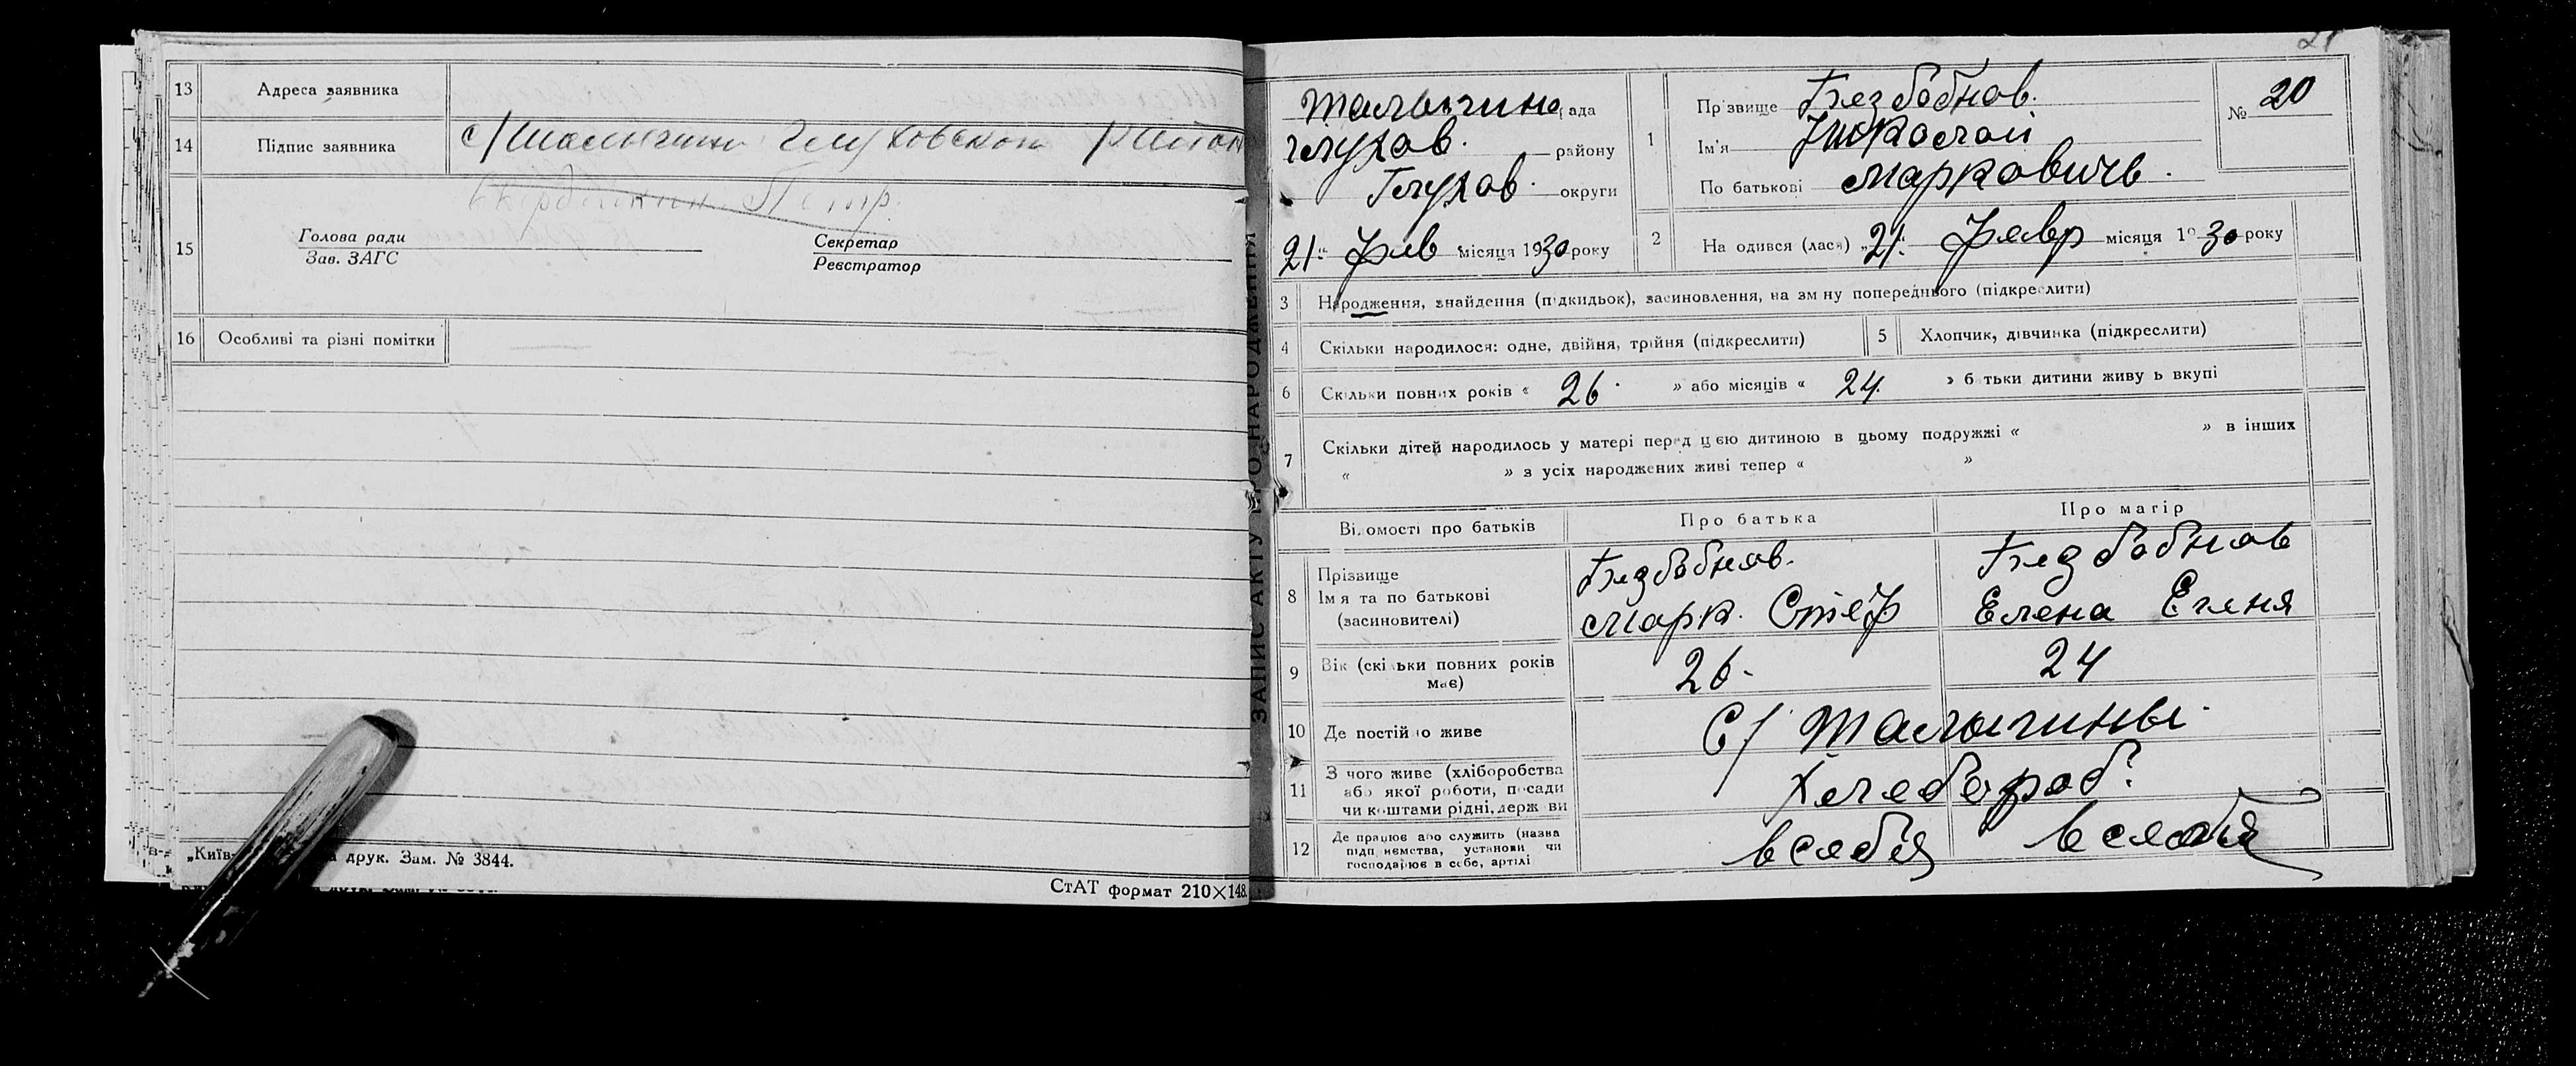 13 Адреса заявника
14 Підпис заявника с/ Шалыгини Глуховскаго района
Петр.
15 Голова ради Секретар
Зав. ЗАГС Реєстратор
16 Особливі та різні помітки
„Київ- друк. Зам. № 3844.
СтАТ формат 210×148.
ЗАПИС АКТУ ПРО НАРОДЖЕННЯ
21
Шалыгине, ради
Глухов. району
Глухов. округи
21 " Фев місяця 1930 року
1 Прізвище Безбобнов.
Ім'я Николай
По батькові Маркович.
№ 20
2 Народився (лася) „ 21. " Февр місяця 1930 року
3 Народження, знайдення (підкидьок), засиновлення, на зміну попереднього (підкреслити)
4 Скільки народилося: одне, двійня, трійня (підкреслити) 5 Хлопчик, дівчинка (підкреслити)
6 Скільки повних років « 26. » або місяців « 24. » батьки дитини живуть вкупі
7 Скільки дітей народилось у матері перед цією дитиною в цьому подружжі « » в інших
« » з усіх народжених живі тепер « »
Відомості про батьків Про батька Про матір
8 Прізвище Безбобнов. Безбобнов
Ім'я та по батькові Марк. Стеф Елена Евгеня
(засиновителі)
9 Вік (скільки повних років має) 26. 24
10 Де постійно живе С/ Шалыгины.
11 З чого живе (хліборобства Хлебороб.
або якої роботи, посади
чи коштами рідні, держави
12 Де працює або служить (назва в себя в себя
підприємства, установи чи
господарює в себе, артілі